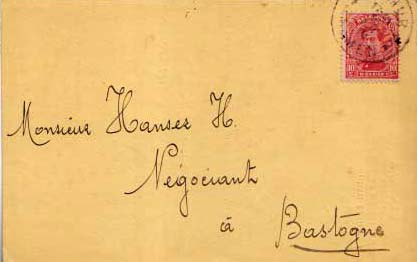 Monsieur Hansez H.
Négociant
à
Bastogne